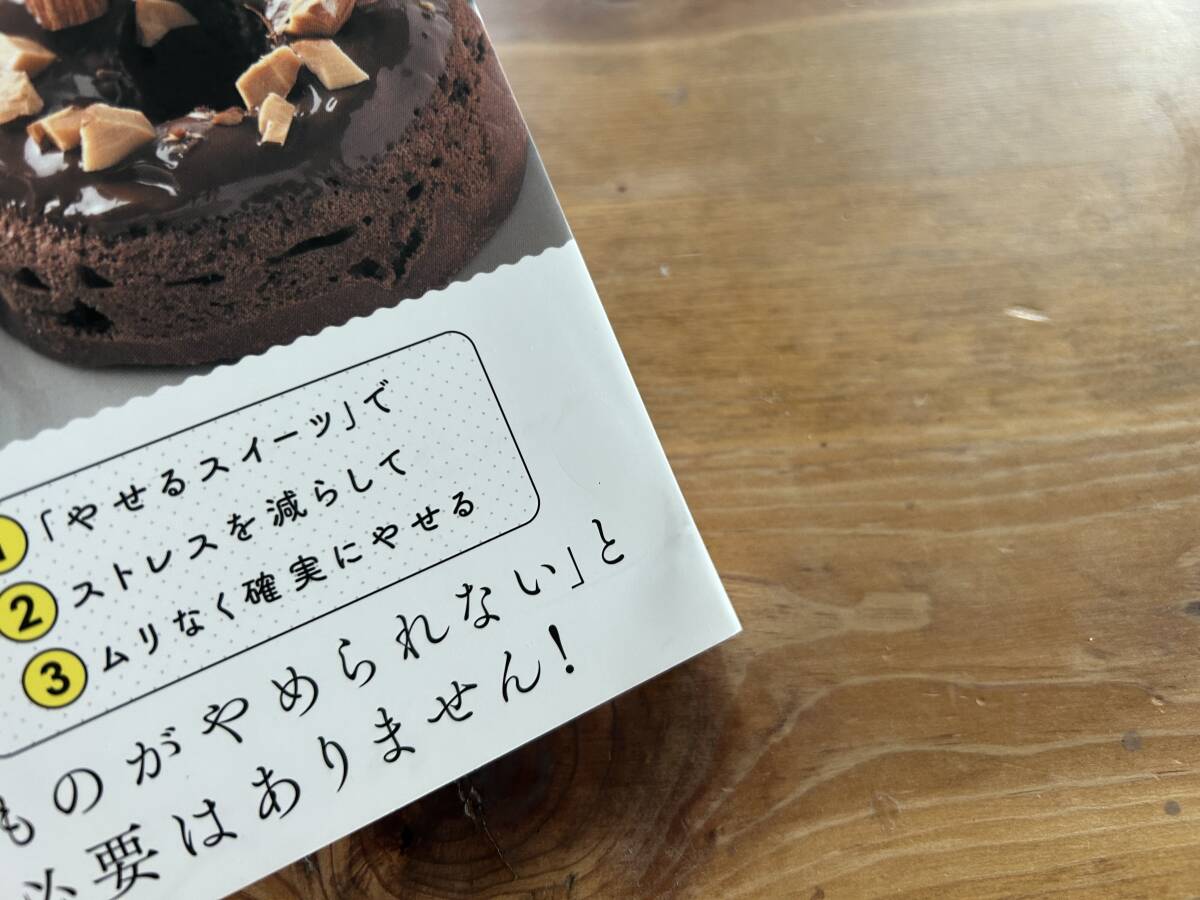 1 「やせるスイーツ」で
2 ストレスを減らして
3 ムリなく確実にやせる
ものがやめられない」と
必要はありません!